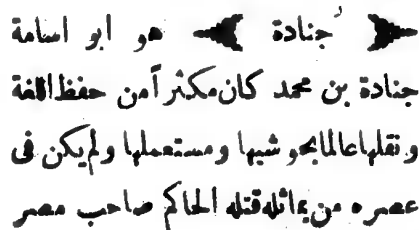 جُنادة هو ابو اسامة
جنادة بن محمد كان مكثراً من حفظ اللغة
ونقلها عالما بحوشيها ومستعملها ولم يكن فى
عصره من يماثله قتله الحاكم صاحب مصر